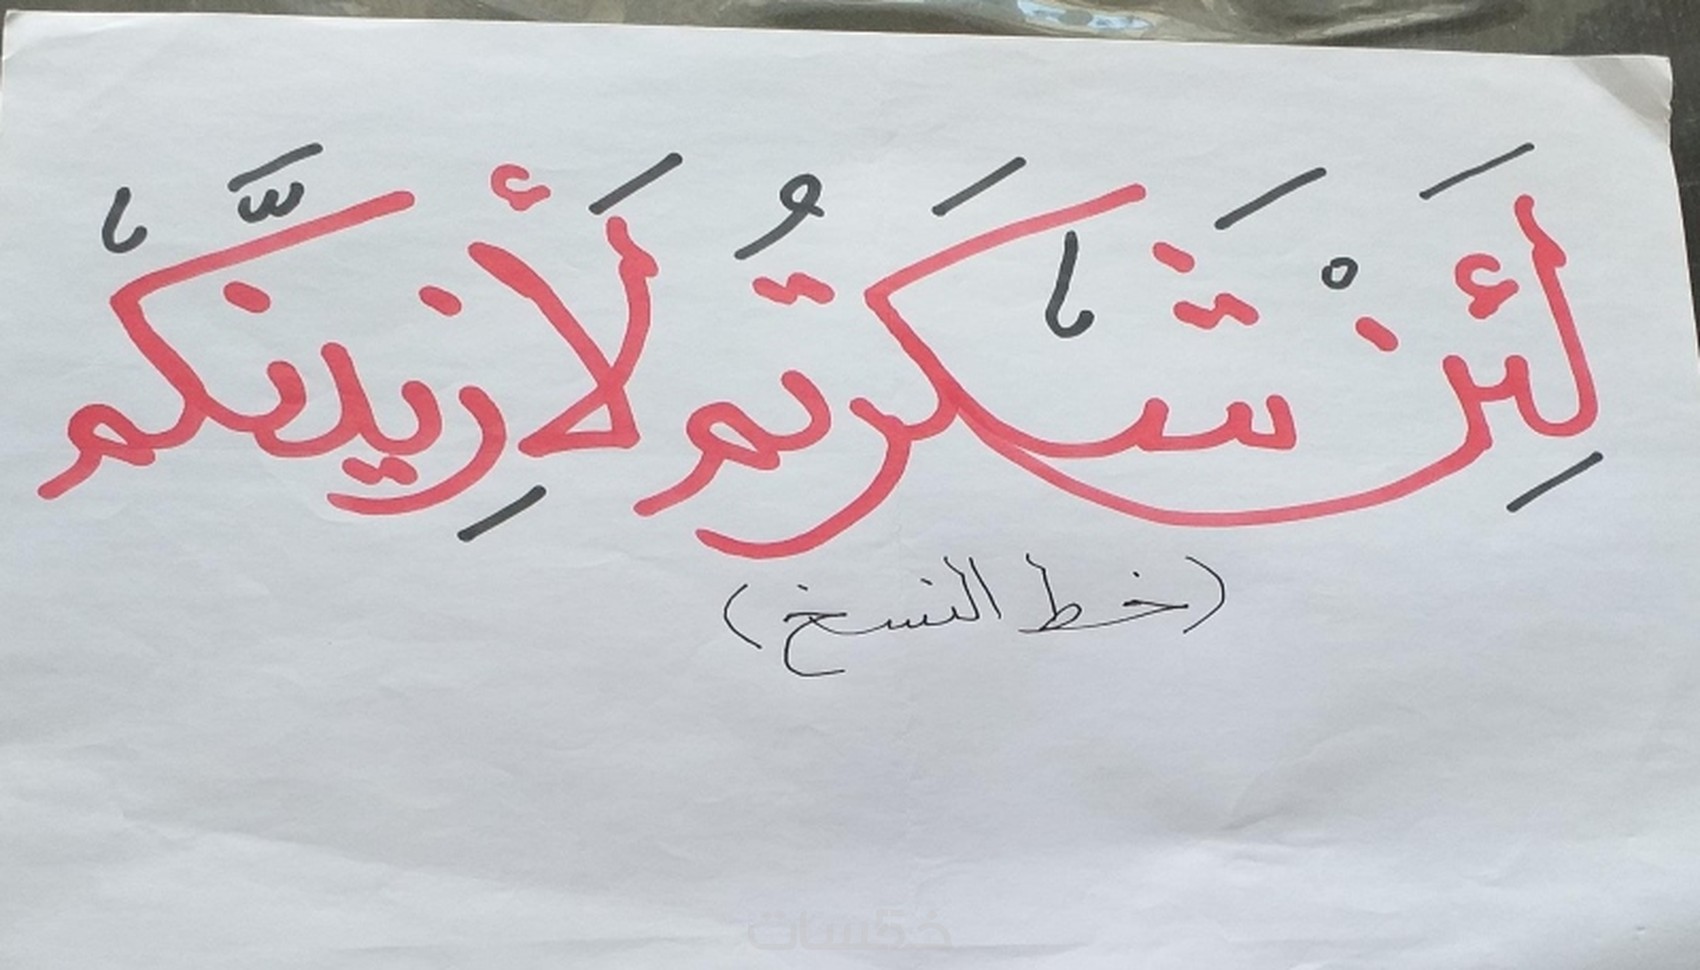 لَئِنْ شَكَرتُم لَأَزِيدنَّكم
(خط النسخ)
خمسات